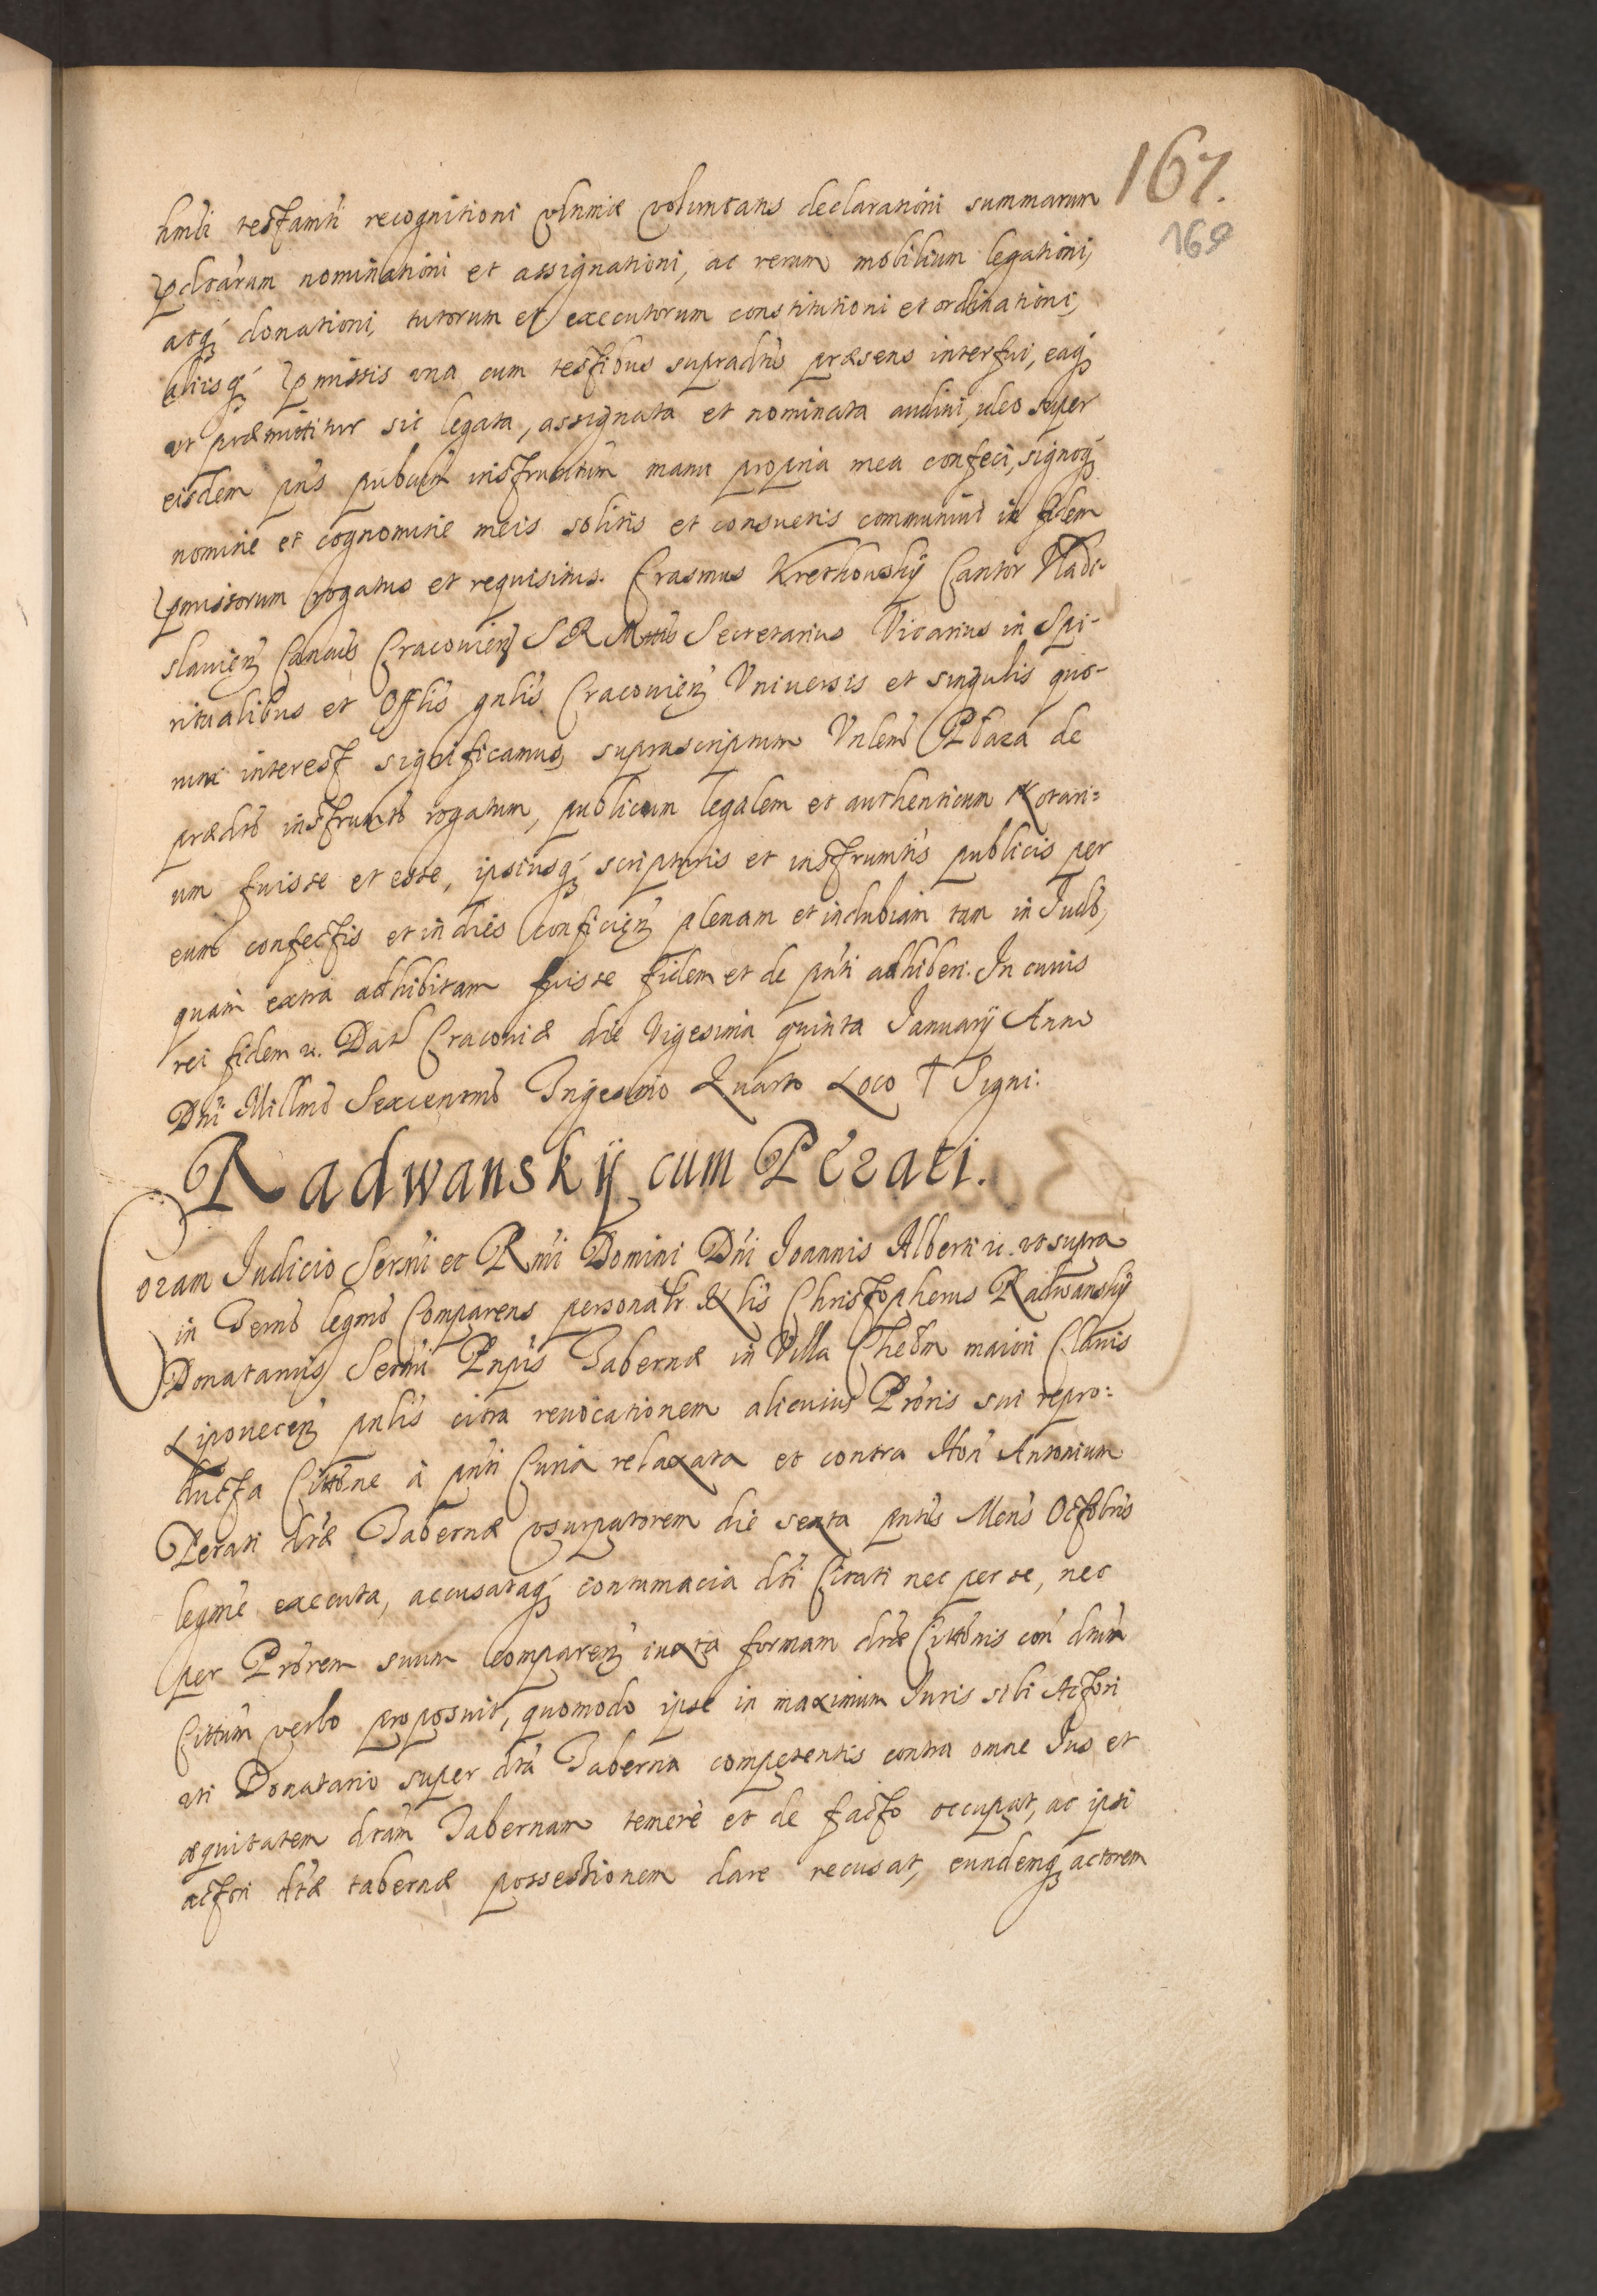 167.
169
hmõi testamti recognitioni vltimæ voluntatis declarationi summarum
pdictarum nominationi et assignationi, ac rerum mobilium legationi,
atq donationi, tutorum et executorum constitutioni et ordinationi,
aliisq pmissis vna cum testibus supradtis præsens interfui, eaq
vt præmittitur sic legata, assignata et nominata audiui, ideo super
eisdem pns pubcum instrumtum manu propria mea confeci, signoq
nomine et cognomine meis solitis et consuetis communiui in fidem
pmissorum rogatus et requisitus. Erasmus Kretkouskij Cantor Vladi-
slauien Cancus Cracouien S R Mttis Secretarius Vicarius in Spi-
ritualibus et Offlis gnlis Cracouien Vniuersis et singulis quo-
rum interest significamus, suprascriptum Vnlem de
prædto instrumto rogatum, publicum legalem et authenticum Notari=
um fuisse et esse, ipsiusq scripturis et instrumtis publicis per
eum confectis et in dies conficien plenam et indubiam tam in Judo,
quam extra adhibitam fuisse fidem et de pnti adhiberi. In cuius
rei fidem &. Dat Cracouiæ die Vigesima quinta Januarij Anno
Dni Millmo Sexcentmo Trigesimo Quarto Loco † Signi.
Radwanskij cum Pezati.
Coram Judicio Sersmi et Rmi Domini Dni Joannis Alberti &. vt supra
in Termo legmo Comparens personalr Nlis Christopherus Radwanskij
Donatarius Sersmi Pnpis Tabernæ in Villa Chelm maiori Clauis
Lipouecen pnlis citra reuocationem alicuius Prôris sui repro=
ducta Cittône à pnti Curia relaxata et contra Hon Antonium
Pezati dtæ Tabernæ vsurpatorem die sexta pntis Mens Octobris
legme executa, accusataq contumacia dti Citati nec per se, nec
per Prôrem suum comparen iuxta formam dtæ Cittônis con dtum
Cittum verbo proposuit, quomodo ipse in maximum Juris sibi Actori
vti Donatario super dta Taberna competentis contra omne Jus et
æquitatem dtam Tabernam temerè et de facto occupat, ac ipsi
actori dtæ tabernæ possessionem dare recusat, eundemq actorem